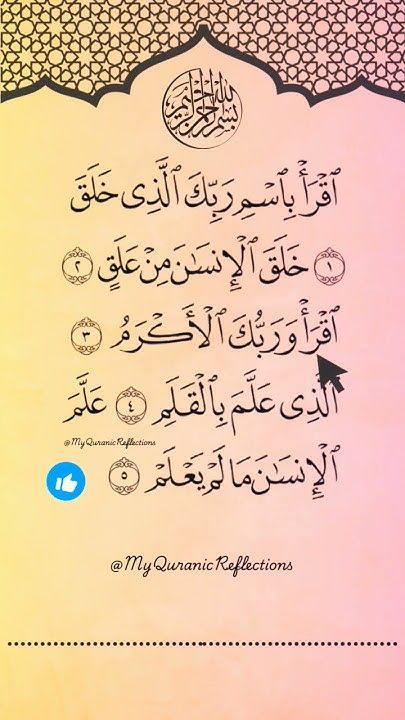 بسم الله الرحمن الرحيم
ٱقْرَأْ بِٱسْمِ رَبِّكَ ٱلَّذِى خَلَقَ
١ خَلَقَ ٱلْإِنسَٰنَ مِنْ عَلَقٍ ٢
ٱقْرَأْ وَرَبُّكَ ٱلْأَكْرَمُ ٣
ٱلَّذِى عَلَّمَ بِٱلْقَلَمِ ٤ عَلَّمَ
@MyQuranicReflections
ٱلْإِنسَٰنَ مَا لَمْ يَعْلَمْ ٥
@MyQuranicReflections